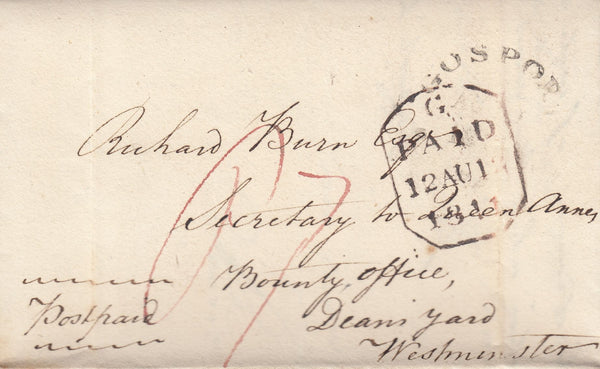 GOSPOR
PAID
12AU12
Richard Burn Esqr
Secretary to Queen Annes
Bounty office,
Deans Yard
Westminster
Postpaid